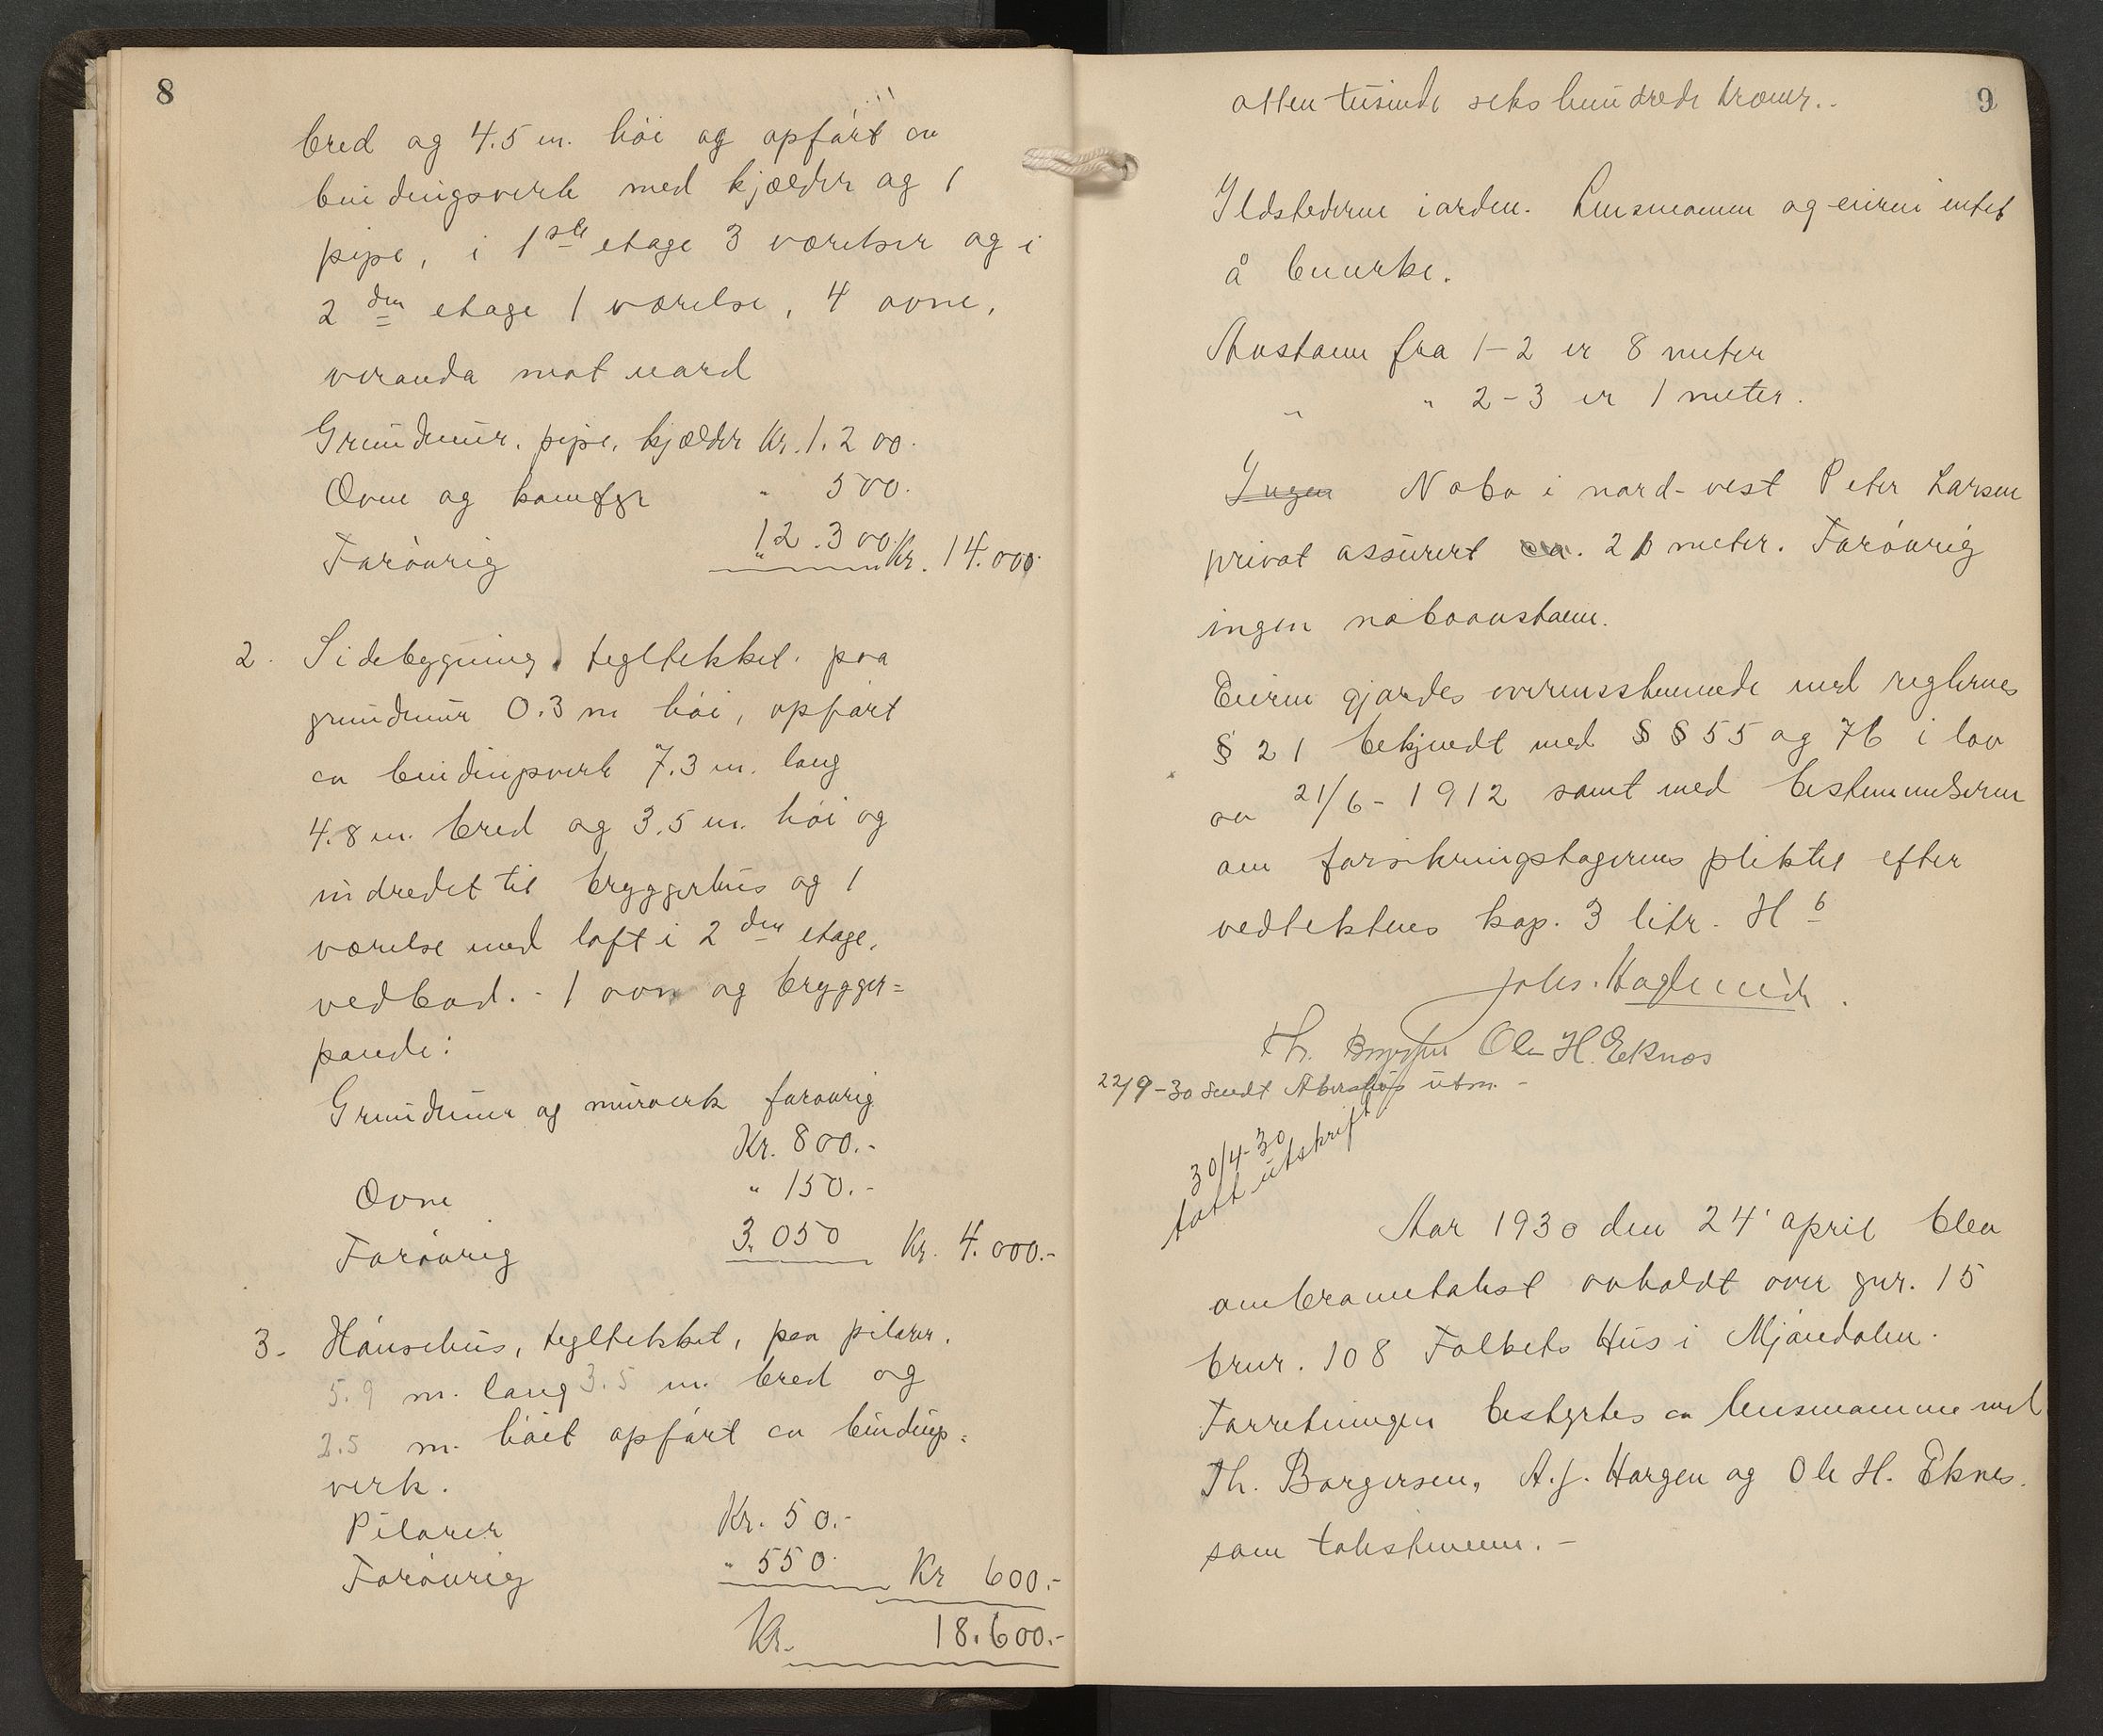 8
bred og 4.5 m. høi og opført av
bindingsverk med kjælder og 1
pipe, i 1ste etage 3 værelser og i
2 den etage 1 værelse, 4 ovne,
veranda mot nord
Grundmur, pipe, kjælder Kr. 1.200.
Ovne og komfyr " 500.
Forøvrig " 12.300. Kr. 14.000.
2. Sidebygning, tegltekket. paa
grundmur 0.3 m høi, opført
av bindingsverk 7.3 m. lang
4.8 m. bred og 3.5 m. høi og
indredet til bryggerhus og 1
værelse med loft i 2 den etage,
vedbod. - 1 ovn og brygger=
pande:
Grundmur og murverk forøvrig
Kr. 800.-
Ovne " 150.-
Forøvrig 3.050 Kr. 4.000.-
3. Hønsehus, tegltekket, paa pilarer.
5.9 m. lang 3.5 m. bred og
2.5 m. høit opført av bindings=
verk.
Pilarer Kr. 50.-
Forøvrig " 550. Kr 600.-
Kr. 18.600.-
9
atten tusinde seks hundrede kroner..
Ildstederne iorden. Lensmannen og eieren intet
å bemerke.
Avstann fra 1-2 er 8 meter
" " 2-3 er 1 meter.
Ingen Nabo i nord-vest Peter Larsen
privat assurert ca. 21 meter. Forøvrig
ingen naboavstann.
Eieren gjordes overensstemmede med reglernes
§ 21 bekjendt med § § 55 og 76 i lov
av 21/6 - 1912 samt med bestemmelserne
om forsikringstagerens pliktel efter
vedtektenes kap. 3 litr. H 6
Johs. Haglund.
Th. Borgersen Ole H. Eknes
22/9-30 sendt Akershus utm. -
30/4-30
tatt utskrift
Aar 1930 den 24' april blev
ombranntakst avholdt over gnr. 15
brnr. 108 Folkets Hus i Mjøndalen.
Forretningen bestyrtes av lensmannen med
Th. Borgersen, A. J. Horgen og Ole H. Eknes.
som takstmenn. -